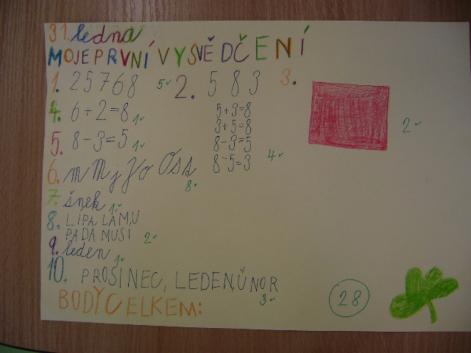 31. ledna
MOJE PRVNÍ VYSVĚDČENÍ
1. 25768 5✓ 2. 583 3.
5+3=8
3+5=8
8-3=5
8-5=3 4✓
2✓
4. 6+2=8 1✓
5. 8-3=5 1✓
6. m M j J o O s S 8✓
7. šnek 1✓
8. LÍPA LÁMU
PADÁ MUSÍ 2✓
9. leden 1✓
10. PROSINEC, LEDEN, ÚNOR 3✓
BODY CELKEM: 28